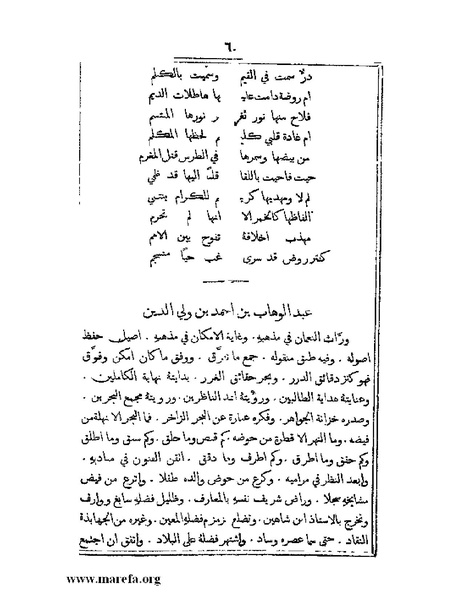 ٦٠
درٌّ سمت في القيم وسميت بالكلم
ام روضة دامت عليـ ـها هاطلات الديم
فلاح منها نور ثغـ ـر نورها المبتسم
ام غادة قلبي كليـ ـم لحظها المكلم
من بيضها وسمرها في الطرس قتل المغرم
حيت فاحيت باللقا قلبًا اليها قد ظمي
لم لا ومهديها كريـ ـم للكرام ينتمي
الفاظها كالخمر الا انها لم تحرم
مهذب اخلاقهُ تنوح بين الامم
كنثر روض قد سرى غب حيًا منسجم
عبد الوهاب بن احمد بن ولي الدين
ورّاث النعمان في مذهبهِ . وغاية الامكان في مذهبهِ . اصيل حفظ
اصوله . وفيه طبق منقوله . جمع ما تفرّق . ووفق ما كان امكن وفوّق
فهو كنز دقائق الدرر . وبحر حقائق الغرر . بدايتهُ نهاية الكاملين .
وعنايتهُ هداية الطالبين . ورؤيتهُ الناظرين . ورويتهُ مجمع البحرين .
وصدره خزانة الجواهر . وفكره عبارة عن البحر الزاخر . فما البحر الا نهلة من
فيضه . وما النهر الا قطرة من حوضه . كم قنص وما حلق . وكم سبق وما اطلق
وكم حقق وما اطرق . وكم اطرف وما دقق . اتقن الفنون في مباديه .
وابعد النظر في مراميه . وكرع من حوض والده طفلا . واترع من فيض
مشايخه سجلا . وراض شريف نفسه بالمعارف . وظليل فضله سابغ ووارف
وتخرج بالاستاذ ابن شاهين . وتضلع زمزم فضله المعين . وغيره من الجهابذة
النقاد . حتى سما عصره وساد . واشتهر فضله على البلاد . واتفق ان اجتمع
www.marefa.org